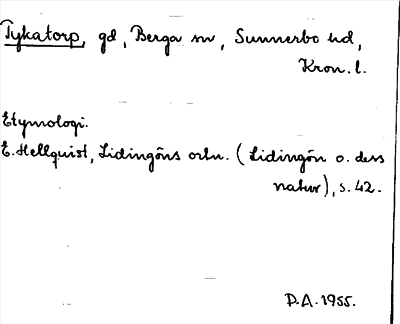 Tykatorp, gd, Berga sn, Sunnerbo hd,
Kron. l.
Etymologi.
E. Hellquist, Lidingöns ortn. (Lidingön o. dess
natur), s. 42.
D.A. 1955.